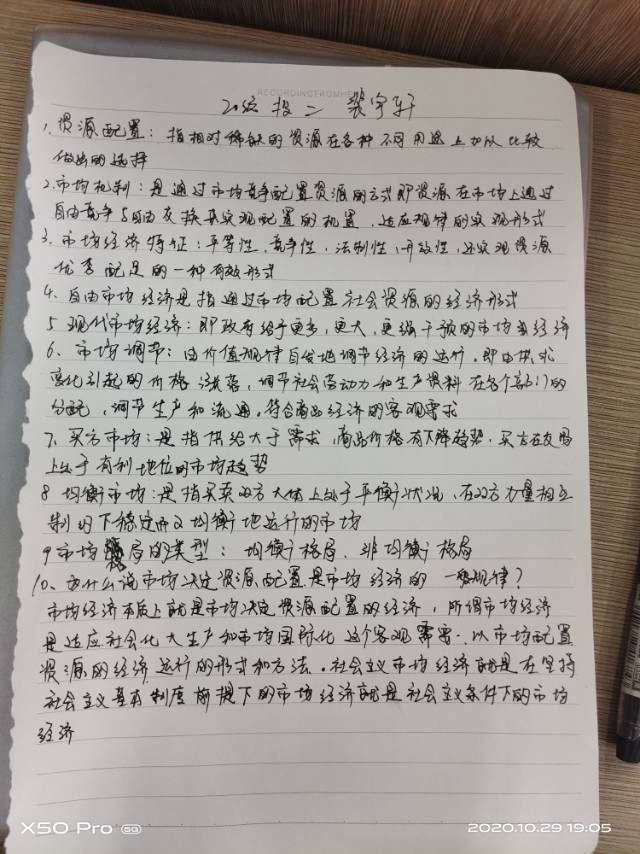 RECORDINGFROMHE
20综投二 裴宇轩
1.资源配置：指相对稀缺的资源在各种不同用途上加以比较
做出的选择
2.市场机制：是通过市场竞争配置资源的方式即资源在市场上通过
自由竞争与自由交换来实现配置的机置，适应规律的实现形式
3.市场经济特征：平等性，竞争性，法制性，开放性，还实现资源
优秀配足的一种有效形式
4.自由市场经济是指通过市场配置社会资源的经济形式
5 现代市场经济：即政府给予更多，更大，更强干预的市场经济
6、市场调节：由价值规律自发地调节经济的运行。即由供求
变化引起的价格涨落，调节社会劳动力和生产资料在各个部门的
分配，调节生产和流通。符合商品经济的客观需求
7、买方市场：是指供给大于需求，商品价格有下降趋势，买方在交易
上处于有利地位的市场趋势
8 均衡市场：是指买卖双方大体上处于平衡状况，在双方力量相互
制约下稳定而又均衡地运行的市场
9市场格局的类型：均衡格局、非均衡格局
10、为什么说市场决定资源配置是市场经济的一般规律？
市场经济本质上就是市场决定资源配置的经济，所谓市场经济
是适应社会化大生产和市场国际化这个客观需要.以市场配置
资源的经济运行的形式和方法。社会主义市场经济就是在坚持
社会主义基本制度前提下的市场经济就是社会主义条件下的市场
经济
X50 Pro 5G
2020.10.29 19:05